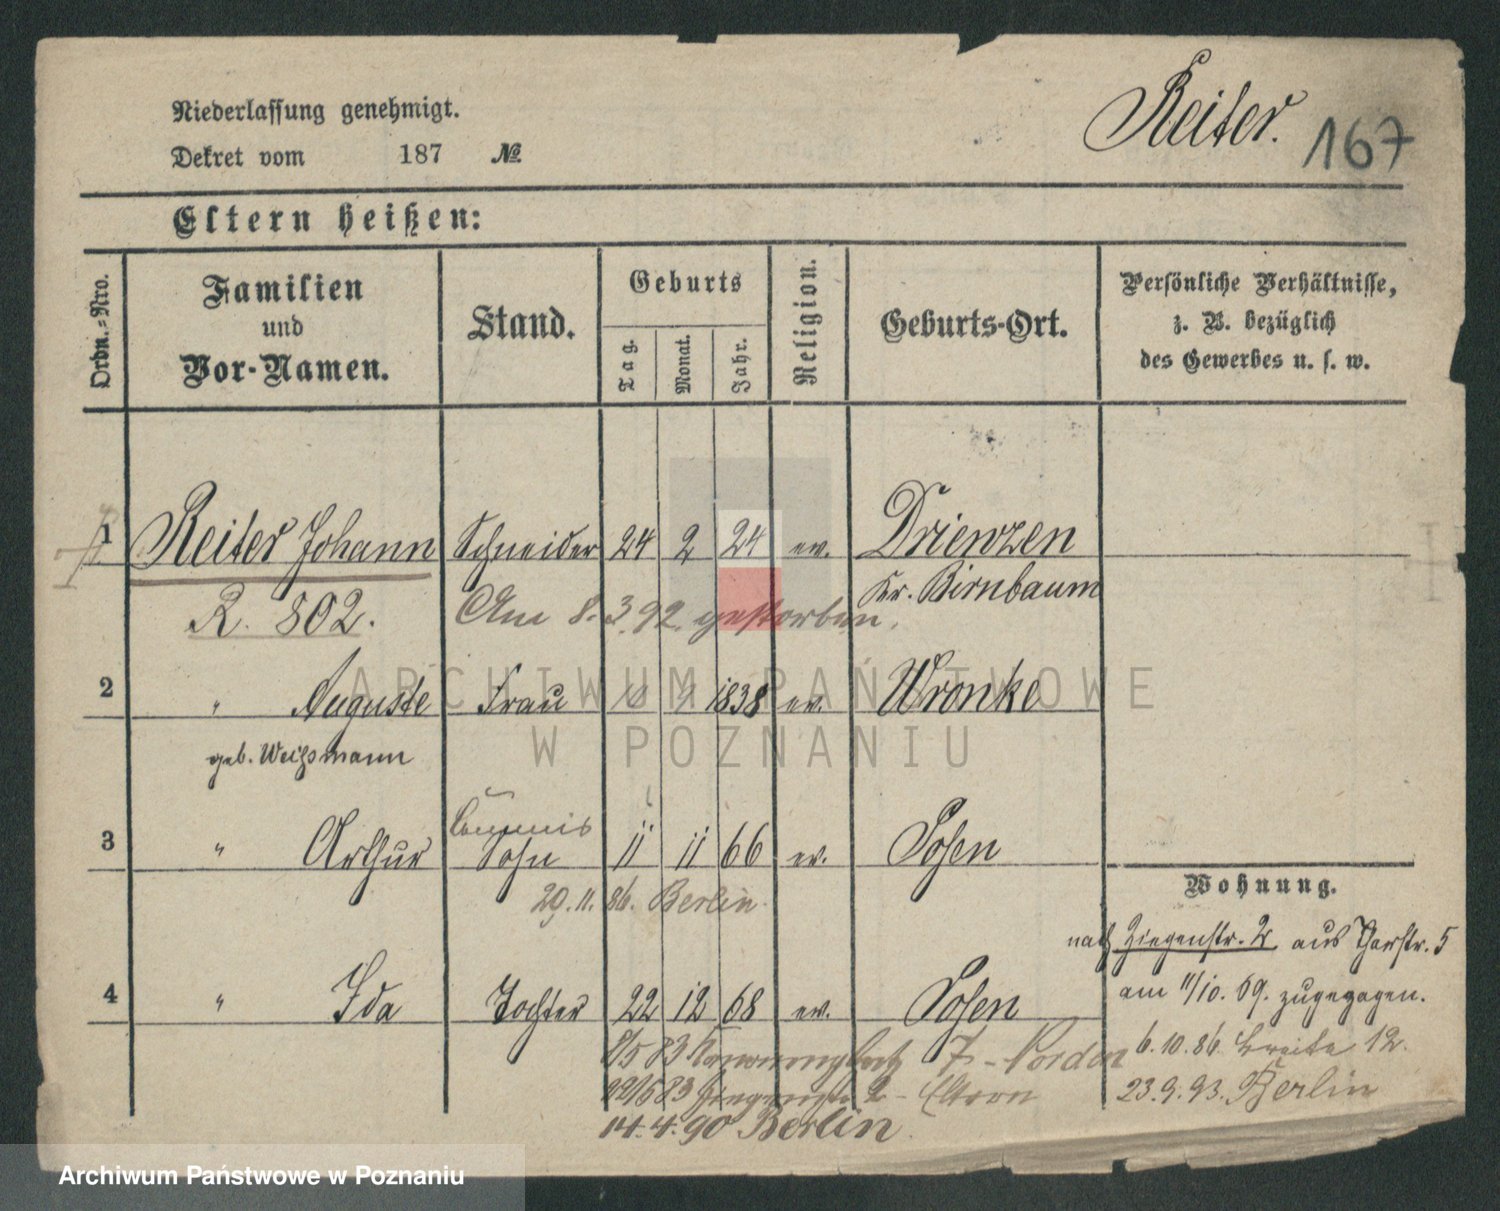 Reiter. 167
Niederlassung genehmigt.
Dekret vom 187 №
Eltern heißen:
Ordn.=Nro.
Familien und Vor-Namen.
Stand.
Geburts
Tag. Monat. Jahr.
Religion.
Geburts-Ort.
Persönliche Verhältnisse, z. B. bezüglich des Gewerbes u. s. w.
1 Reiter Johann Schneider 24 2 24 ev. Drienzen
Kr. Birnbaum
R. 802. Am 8.3.92 gestorben.
2 " Auguste Frau 1838 ev. Wronke
geb. Weißmann
3 " Arthur Sohn 11 11 66 ev. Posen
20.11.86. Berlin.
4 " Ida Tochter 22 12 68 ev. Posen
7 - Norden
2 - Eltern
14.4.90 Berlin
Wohnung.
nach Ziegenstr. 2 aus 5
am 11/10. 69. zugezogen.
6.10.86. Breite 12.
23.9.93. Berlin
ARCHIWUM PAŃSTWOWE
W POZNANIU
Archiwum Państwowe w Poznaniu